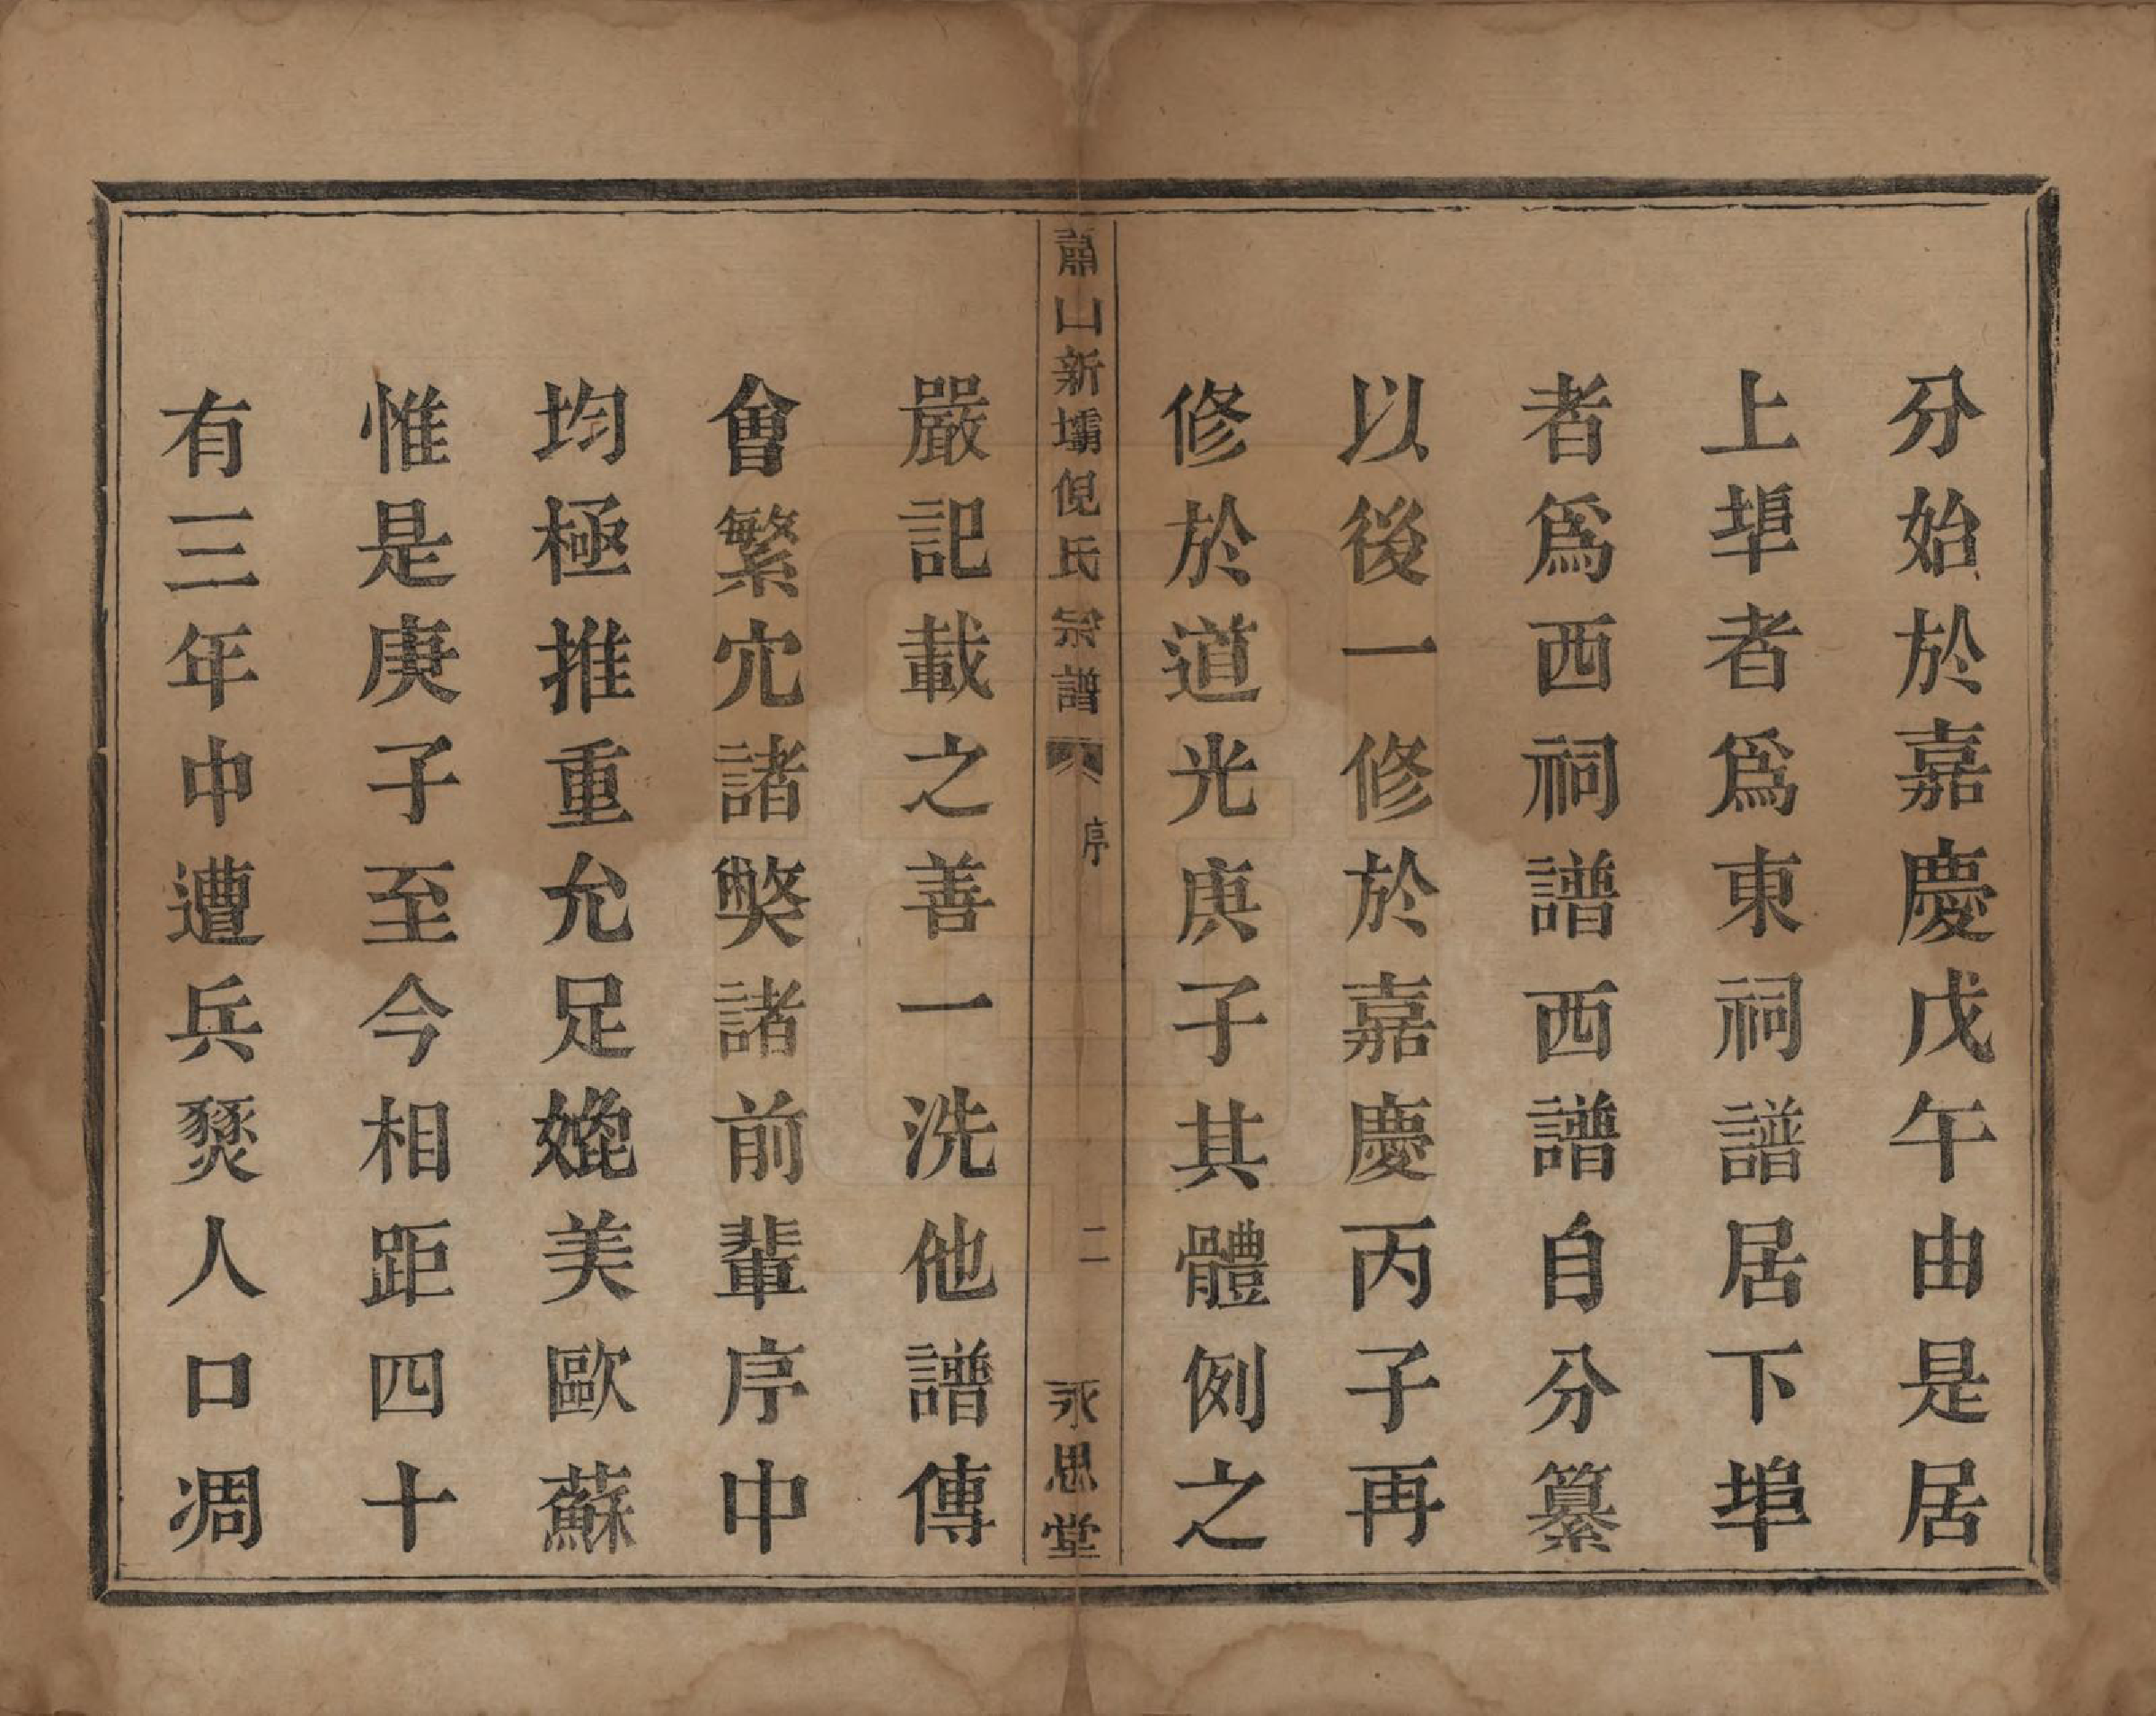 分始於嘉慶戊午由是居
上埠者爲東祠譜居下埠
者爲西祠譜西譜自分纂
以後一修於嘉慶丙子再
修於道光庚子其體例之
蕭山新壩倪氏宗譜 序 二 永思堂
嚴記載之善一洗他譜傳
會繁宂諸獘諸前輩序中
均極推重允足媲美歐蘇
惟是庚子至今相距四十
有三年中遭兵燹人口凋